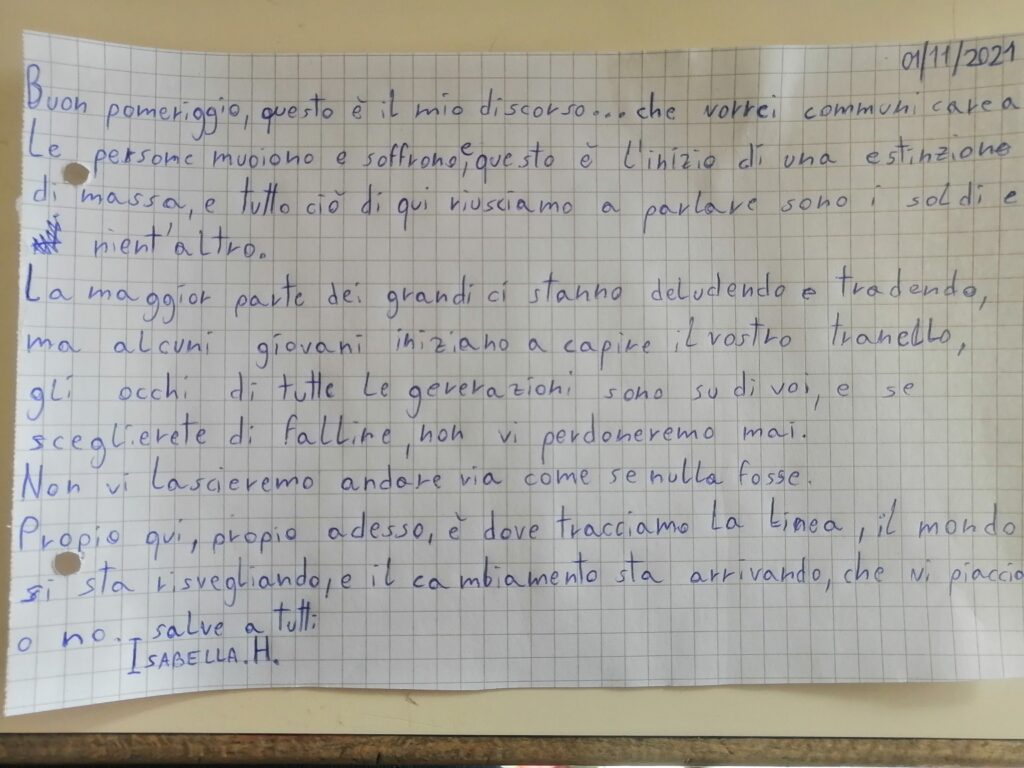 01/11/2021
Buon pomeriggio, questo è il mio discorso... che vorrei communicare a
Le persone muoiono e soffrono, e questo è l'inizio di una estinzione
di massa, e tutto ciò di qui riusciamo a parlare sono i soldi e
nient'altro.
La maggior parte dei grandi ci stanno deludendo e tradendo,
ma alcuni giovani iniziano a capire il vostro tranello,
gli occhi di tutte le generazioni sono su di voi, e se
sceglierete di fallire, non vi perdoneremo mai.
Non vi lascieremo andare via come se nulla fosse.
Propio qui, propio adesso, è dove tracciamo la linea, il mondo
si sta risvegliando, e il cambiamento sta arrivando, che vi piaccia
o no... salve a tutti
ISABELLA.H.